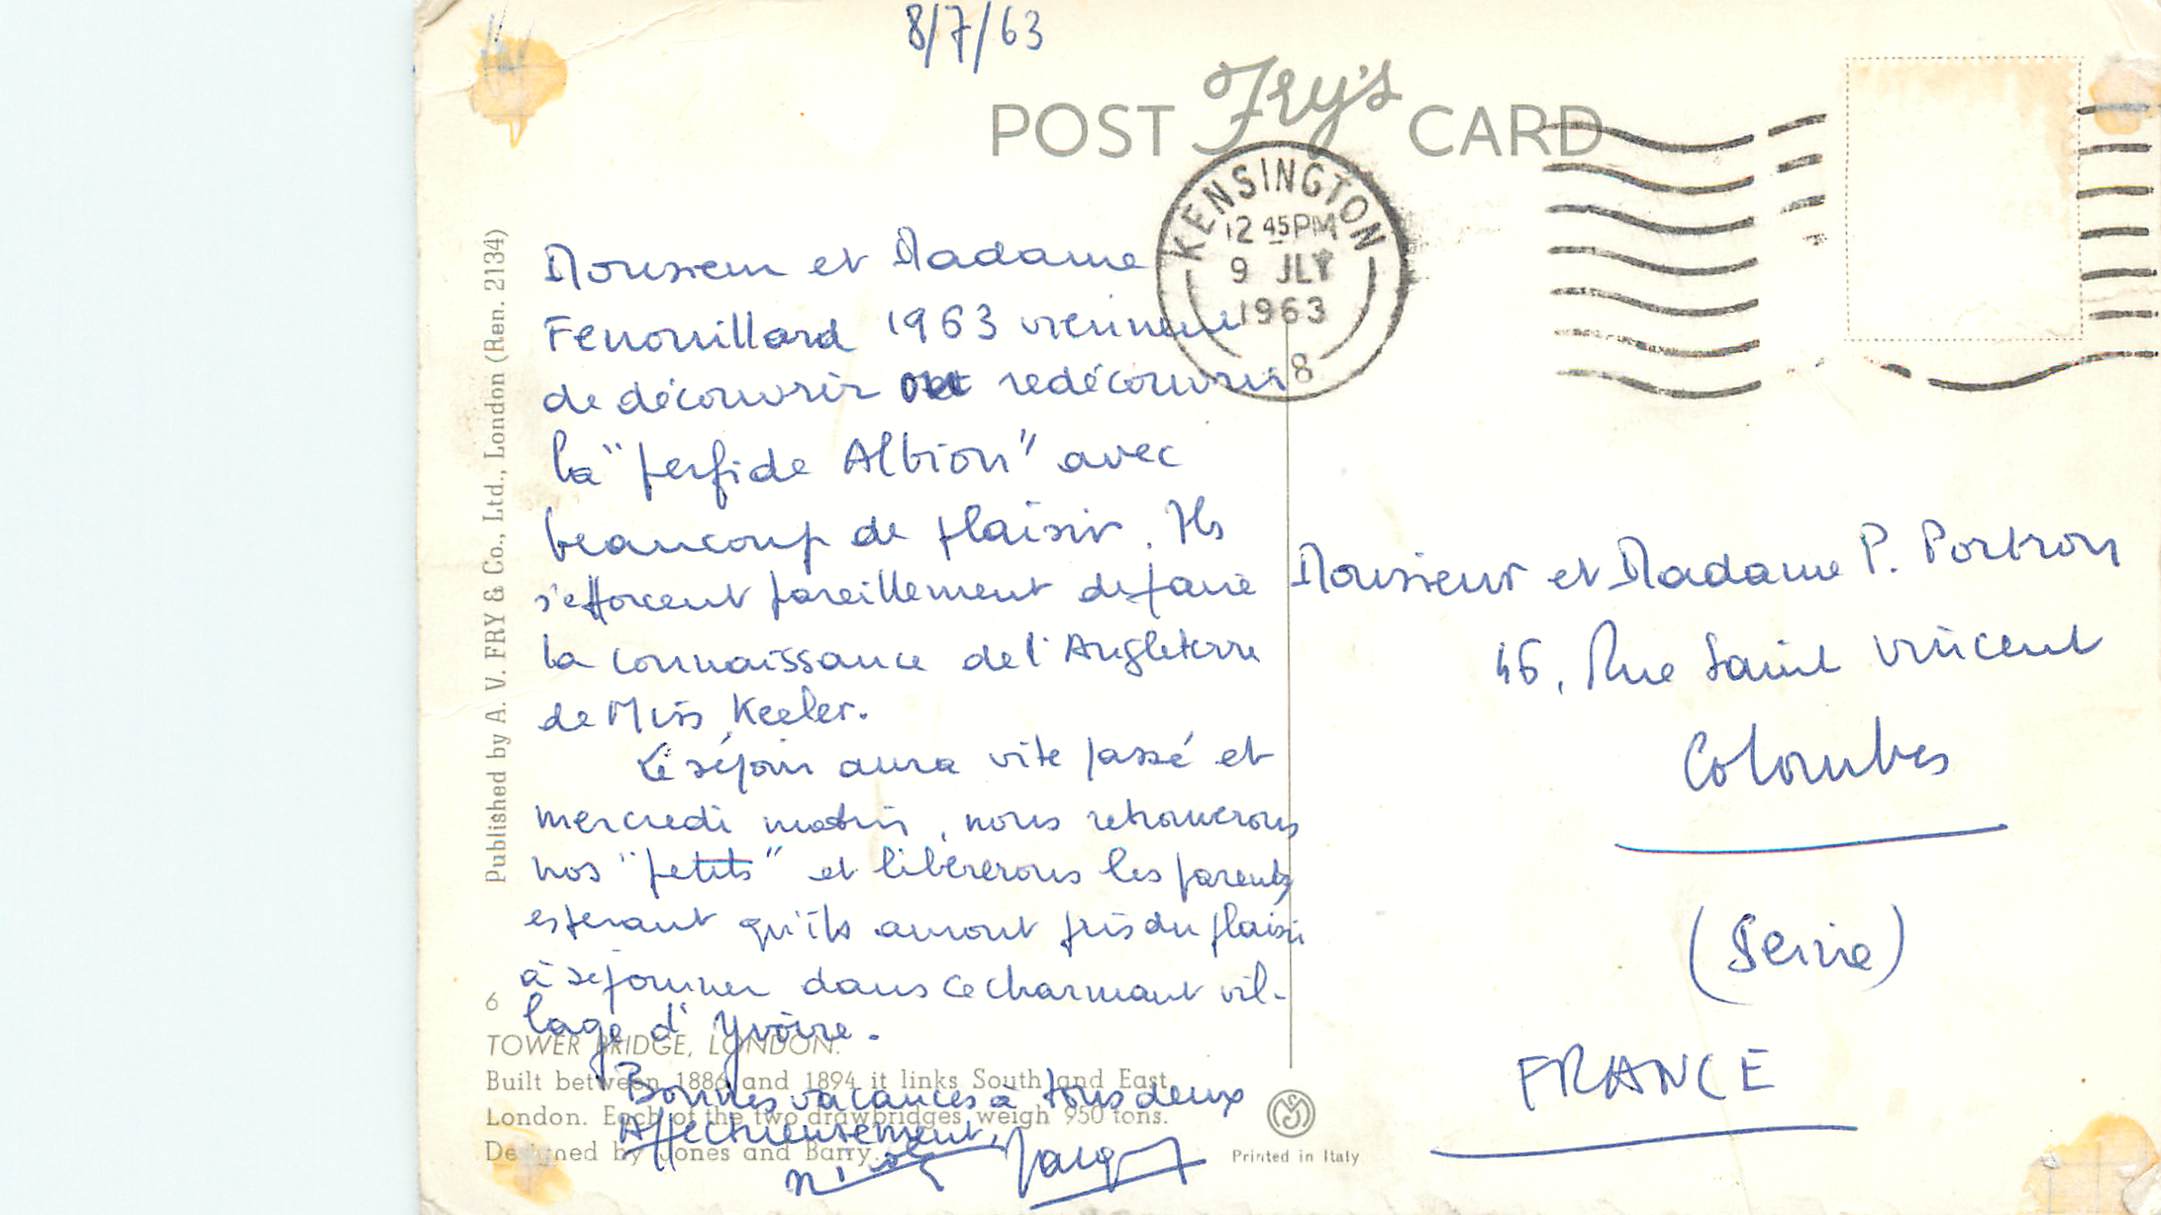 8/7/63
POST Fry's CARD
KENSINGTON
12 45 PM
9 JLY
1963
8
Monsieur et Madame
Fenouillard 1963 viennent
de découvrir et redécouvrir
la "perfide Albion" avec
beaucoup de plaisir. Ils
s'efforcent pareillement de faire
la connaissance de l'Angleterre
de Miss Keeler.
Le séjour aura vite passé et
mercredi matin, nous retrouverons
nos "petits" et libérerons les parents
espérant qu'ils auront pris du plaisir
à séjourner dans ce charmant vil-
lage d'Yvoire.
Bonnes vacances à tous deux
Affectueusement,
Nicole Jacques
Monsieur et Madame P. Portron
46, Rue Saint Vincent
Colombes
(Seine)
FRANCE
Published by A. V. FRY & Co., Ltd., London (Ren. 2134)
6
TOWER BRIDGE, LONDON.
Built between 1886 and 1894 it links South and East
London. Each of the two drawbridges weigh 950 tons.
Designed by Jones and Barry.
Printed in Italy